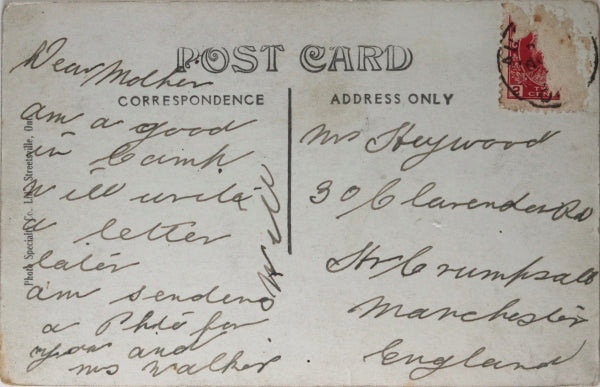 POST CARD
CORRESPONDENCE
ADDRESS ONLY
Dear Mother
am a good
in Camp
will write
a letter
later
am sendeng
a Phto for
you and
ms Walker
Will
Mrs Heywood
30 Clarendon Rd
Hr Crumpsall
Manchester
England
Photo Specialty Co. Ltd., Streetsville, Ont.
2